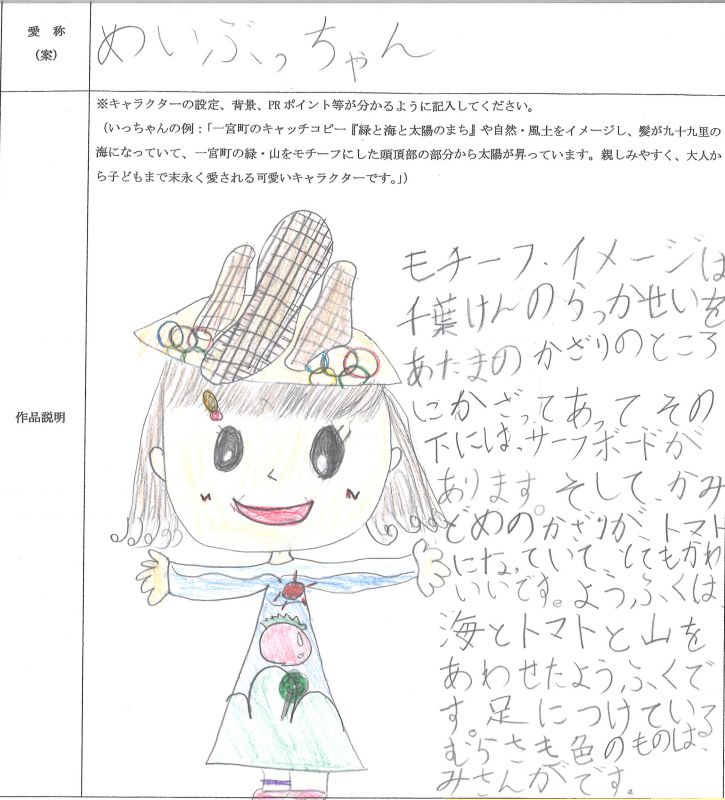 愛 称
(案)
めいぶぃっちゃん
※キャラクターの設定、背景、PR ポイント等が分かるように記入してください。
(いっちゃんの例:「一宮町のキャッチコピー『緑と海と太陽のまち』や自然・風土をイメージし、髪が九十九里の
海になっていて、一宮町の緑・山をモチーフにした頭頂部の部分から太陽が昇っています。親しみやすく、大人か
ら子どもまで末永く愛される可愛いキャラクターです。」)
作品説明
モチーフ・イメージは
千葉けんのらっかせいを
あたまのかざりのところ
にかざってあってその
下には、サーフボードが
あります。そして、かみ
どめのかざりが、トマト
になっていて、とてもかわ
いいです。ようふくは
海とトマトと山を
あわせたようふくで
す。足につけている
むらさき色のものは、
みさんがです。